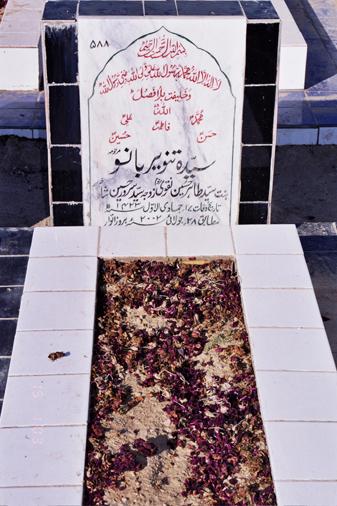 ۵۸۸
بسم اللہ الرحمن الرحیم
لا الہ الا اللہ محمد رسول اللہ علی ولی اللہ وصی رسول اللہ
وخلیفتہ بلا فصل
اللہ
محمد علی
فاطمہ
حسن حسین
سیدہ تنویر بانو مرحومہ
بنت سید طاہر حسین نقوی زوجہ سید سرور حسین شاہ
تاریخ وفات ۱۷ جمادی الاول ۱۴۲۳ھ
مطابق ۲۸ جولائی ۲۰۰۲ء بروز اتوار